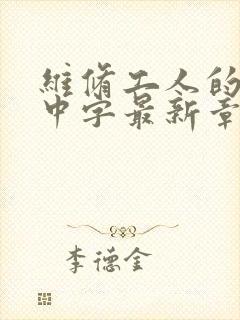 維脩工人的
中字最新章
李德金